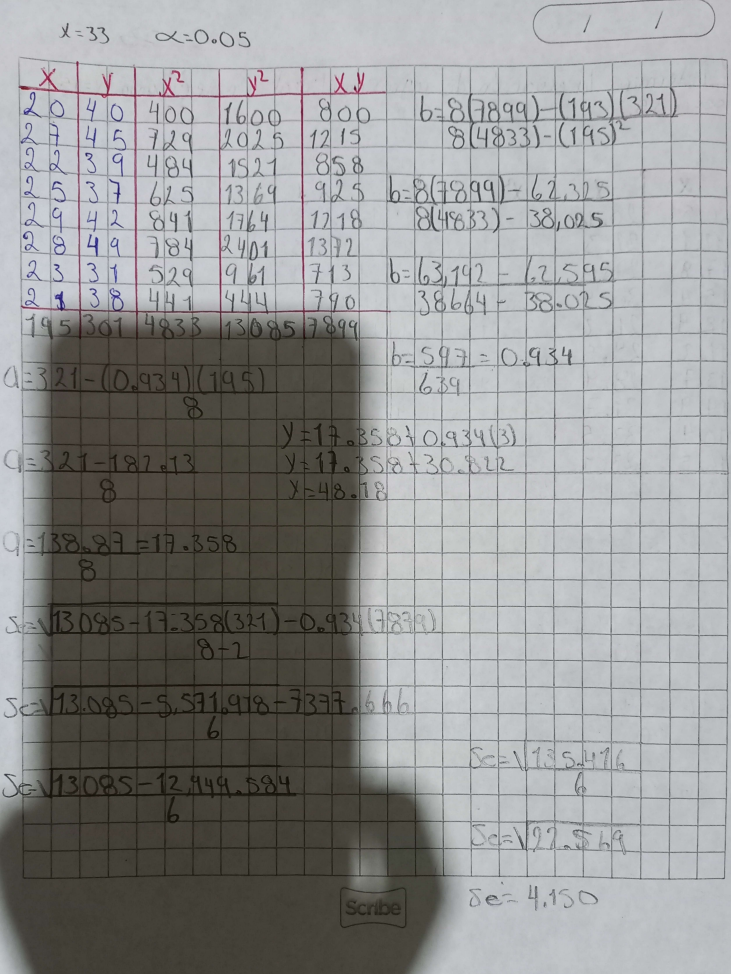 x=33 α=0.05
/ /
x y x² y² x.y
20 40 400 1600 800
27 45 729 2025 1215
22 39 484 1521 858
25 37 625 1369 925
29 42 841 1764 1218
28 49 784 2401 1372
23 31 529 961 713
21 38 441 444 790
195 301 4833 13085 7899
b=8(7899)-(193)(321)
8(4833)-(195)²
b=8(7899)-62,325
8(4833)-38,025
b=63,192-62,595
38664-38.025
b=597=0.934
639
a=321-(0.934)(195)
8
y=17.358+0.934(3)
a=321-182.13
8
y=17.358+30.822
y=48.18
a=138.87=17.358
8
Se=√13085-17.358(321)-0.934(7899)
8-2
Se=√13.085-5,571.918-7377.666
6
Se=√13085-12,949.584
6
Se=√135.416
6
Se=√22.569
Se=4.150
Scribe